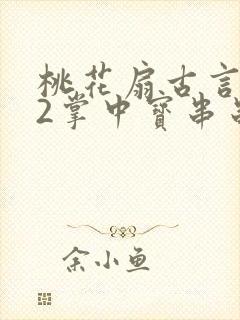 桃花扇古言
2掌中寳串
余小鱼